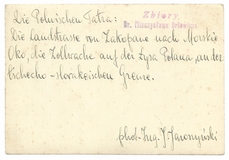 Zbiory
Die Polnischen Tatra:
Die Landstrasse von Zakopane nach Morskie
Oko, die Zollwache auf der Lysa Polana an der
Tschecho-slovakischen Grenze.
phot. Ing. J. Jaroszyński